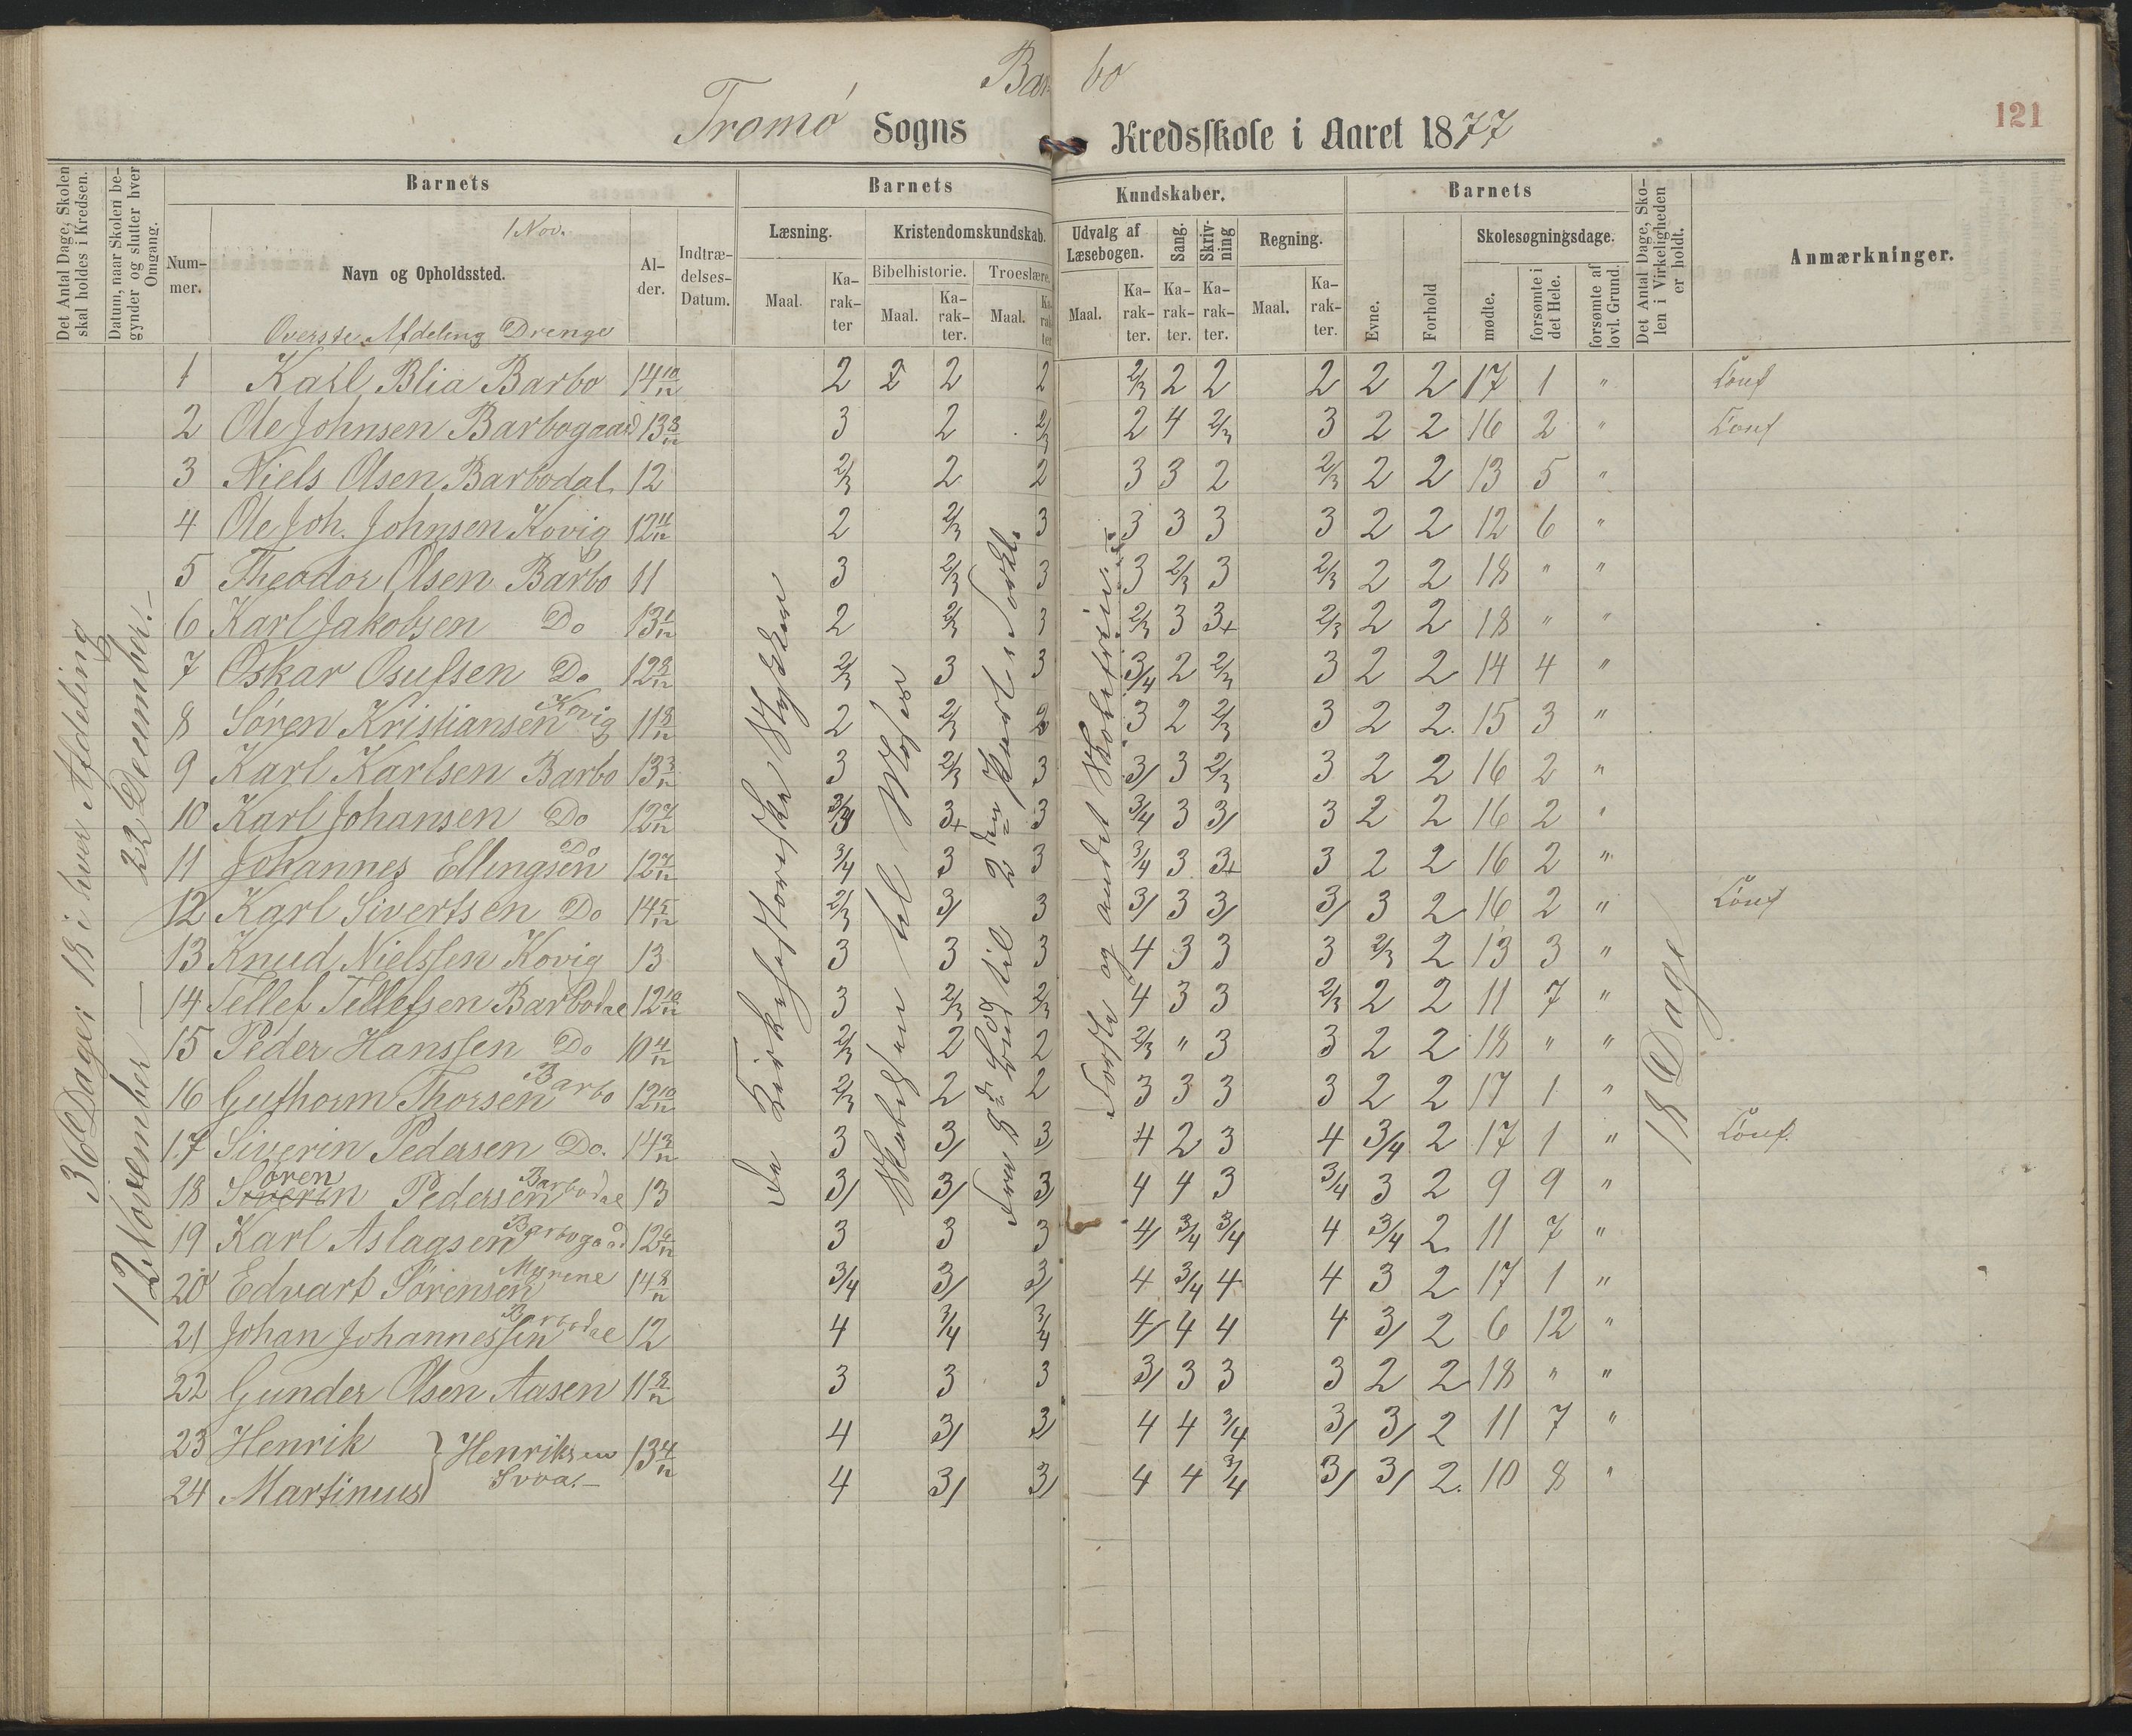 Bar bo
Tromø Sogns Kredsskole i Aaret 1877
121
Det Antal Dage, Skolen skal holdes i Kredsen.
Datum, naar Skolen begynder og slutter hver Omgang.
Barnets
Nummer.
1 Nov.
Navn og Opholdssted.
Alder.
Indtrædelses-Datum.
Barnets
Læsning.
Maal.
Karakter
Kristendomskundskab.
Bibelhistorie.
Maal.
Karakter.
Troeslære.
Maal.
Karakter
Kundskaber.
Udvalg af Læsebogen.
Maal.
Karakter.
Sang.
Karakter.
Skrivning
Karakter.
Regning.
Maal.
Karakter.
Barnets
Evne.
Forhold
Skolesøgningsdage.
mødte.
forsømte i det Hele.
forsømte af lovl. Grund.
Det Antal Dage, Skolen i Virkeligheden er holdt.
Anmærkninger.
Øverste Afdeling Drenge
36 Dage 18 i hver Afdeling
12 November — 22 December. —
De Kirkehistoriske Stykker
Skabelsen til Moses
Fra 8de Bud til 2den Part 3 Artkl.
Første og andet Skoletrin
18 Dage
1 Karl Blia Barbo 14 10/12 2 2 2 2 2/3 2 2 2 2 2 17 1 " Conf
2 Ole Johnsen Barbogaard 13 8/12 3 2 2/3 2 4 2/3 3 2 2 16 2 " Conf
3 Niels Olsen Barbodal 12 2/3 2 2 3 3 2 2/3 2 2 13 5 "
4 Ole Joh. Johnsen Kovig 12 11/12 2 2/3 3 3 3 3 3 2 2 12 6 "
5 Theodor Olsen Barbo 11 3 2/3 3 3 2/3 3 2/3 2 2 18 " "
6 Karl Jakobsen Do 13 1/12 2 2/3 3 2/3 3 3+ 2/3 2 2 18 " "
7 Oskar Osufsen Do 12 8/12 2/3 3 3 3/4 2 2/3 3 2 2 14 4 "
8 Søren Kristiansen Kovig 11 8/12 2 2/3 2 3 2 2/3 3 2 2 15 3 "
9 Karl Karlsen Barbo 13 3/12 3 2/3 3 3/ 3 2/3 3 2 2 16 2 "
10 Karl Johansen Do 12 7/12 3/4 3+ 3 3/4 3 3/ 3 2 2 16 2 "
11 Johannes Ellingsen Do 12 7/12 3/4 3 3 3/4 3 3+ 3 2 2 16 2 "
12 Karl Sivertsen Do 14 5/12 2/3 3/ 3 3/ 3 3/ 3/ 3 2 16 2 " Conf
13 Knud Nielssen Kovig 13 3 3 3 4 3 3 3 2/3 2 13 3 "
14 Tellef Tellefsen Barbodal 12 10/12 3 2/3 2/3 4 3 3 2/3 2 2 11 7 "
15 Peder Hanssen Do 10 4/12 2/3 2 2 2/3 " 3 3 2 2 18 " "
16 Guthorm Thorsen Barbo 12 10/12 2/3 2 2 3 3 3 3 2 2 17 1 "
17 Siverin Pedersen Do. 14 3/12 3 3/ 3/ 4 2 3 4 3/4 2 17 1 " Conf.
18 Søren Pedersen Barbodal 13 3/ 3/ 3/ 4 4 3 3/4 3 2 9 9 "
19 Karl Aslagsen Barbogaard 12 6/12 3 3 3 4/ 3/4 3/4 4 3/4 2 11 7 "
20 Edvart Sørensen Myrene 14 8/12 3/4 3/ 3/ 4 3/4 4 4 3 2 17 1 "
21 Johan Johannessen Barbodal 12 4 3/4 3/4 4/ 4 4 4 3/ 2 6 12 "
22 Gunder Olsen Aasen 11 8/12 3 3 3 3/ 3 3 3 2 2 18 " "
23 Henrik } Henriksen 13 4/12 4 3/ 3/ 4 4 3/4 3/ 3/ 2 11 7 "
24 Martinus 4 3/ 3/ 4 4 3/4 3/ 3/ 2 10 8 "